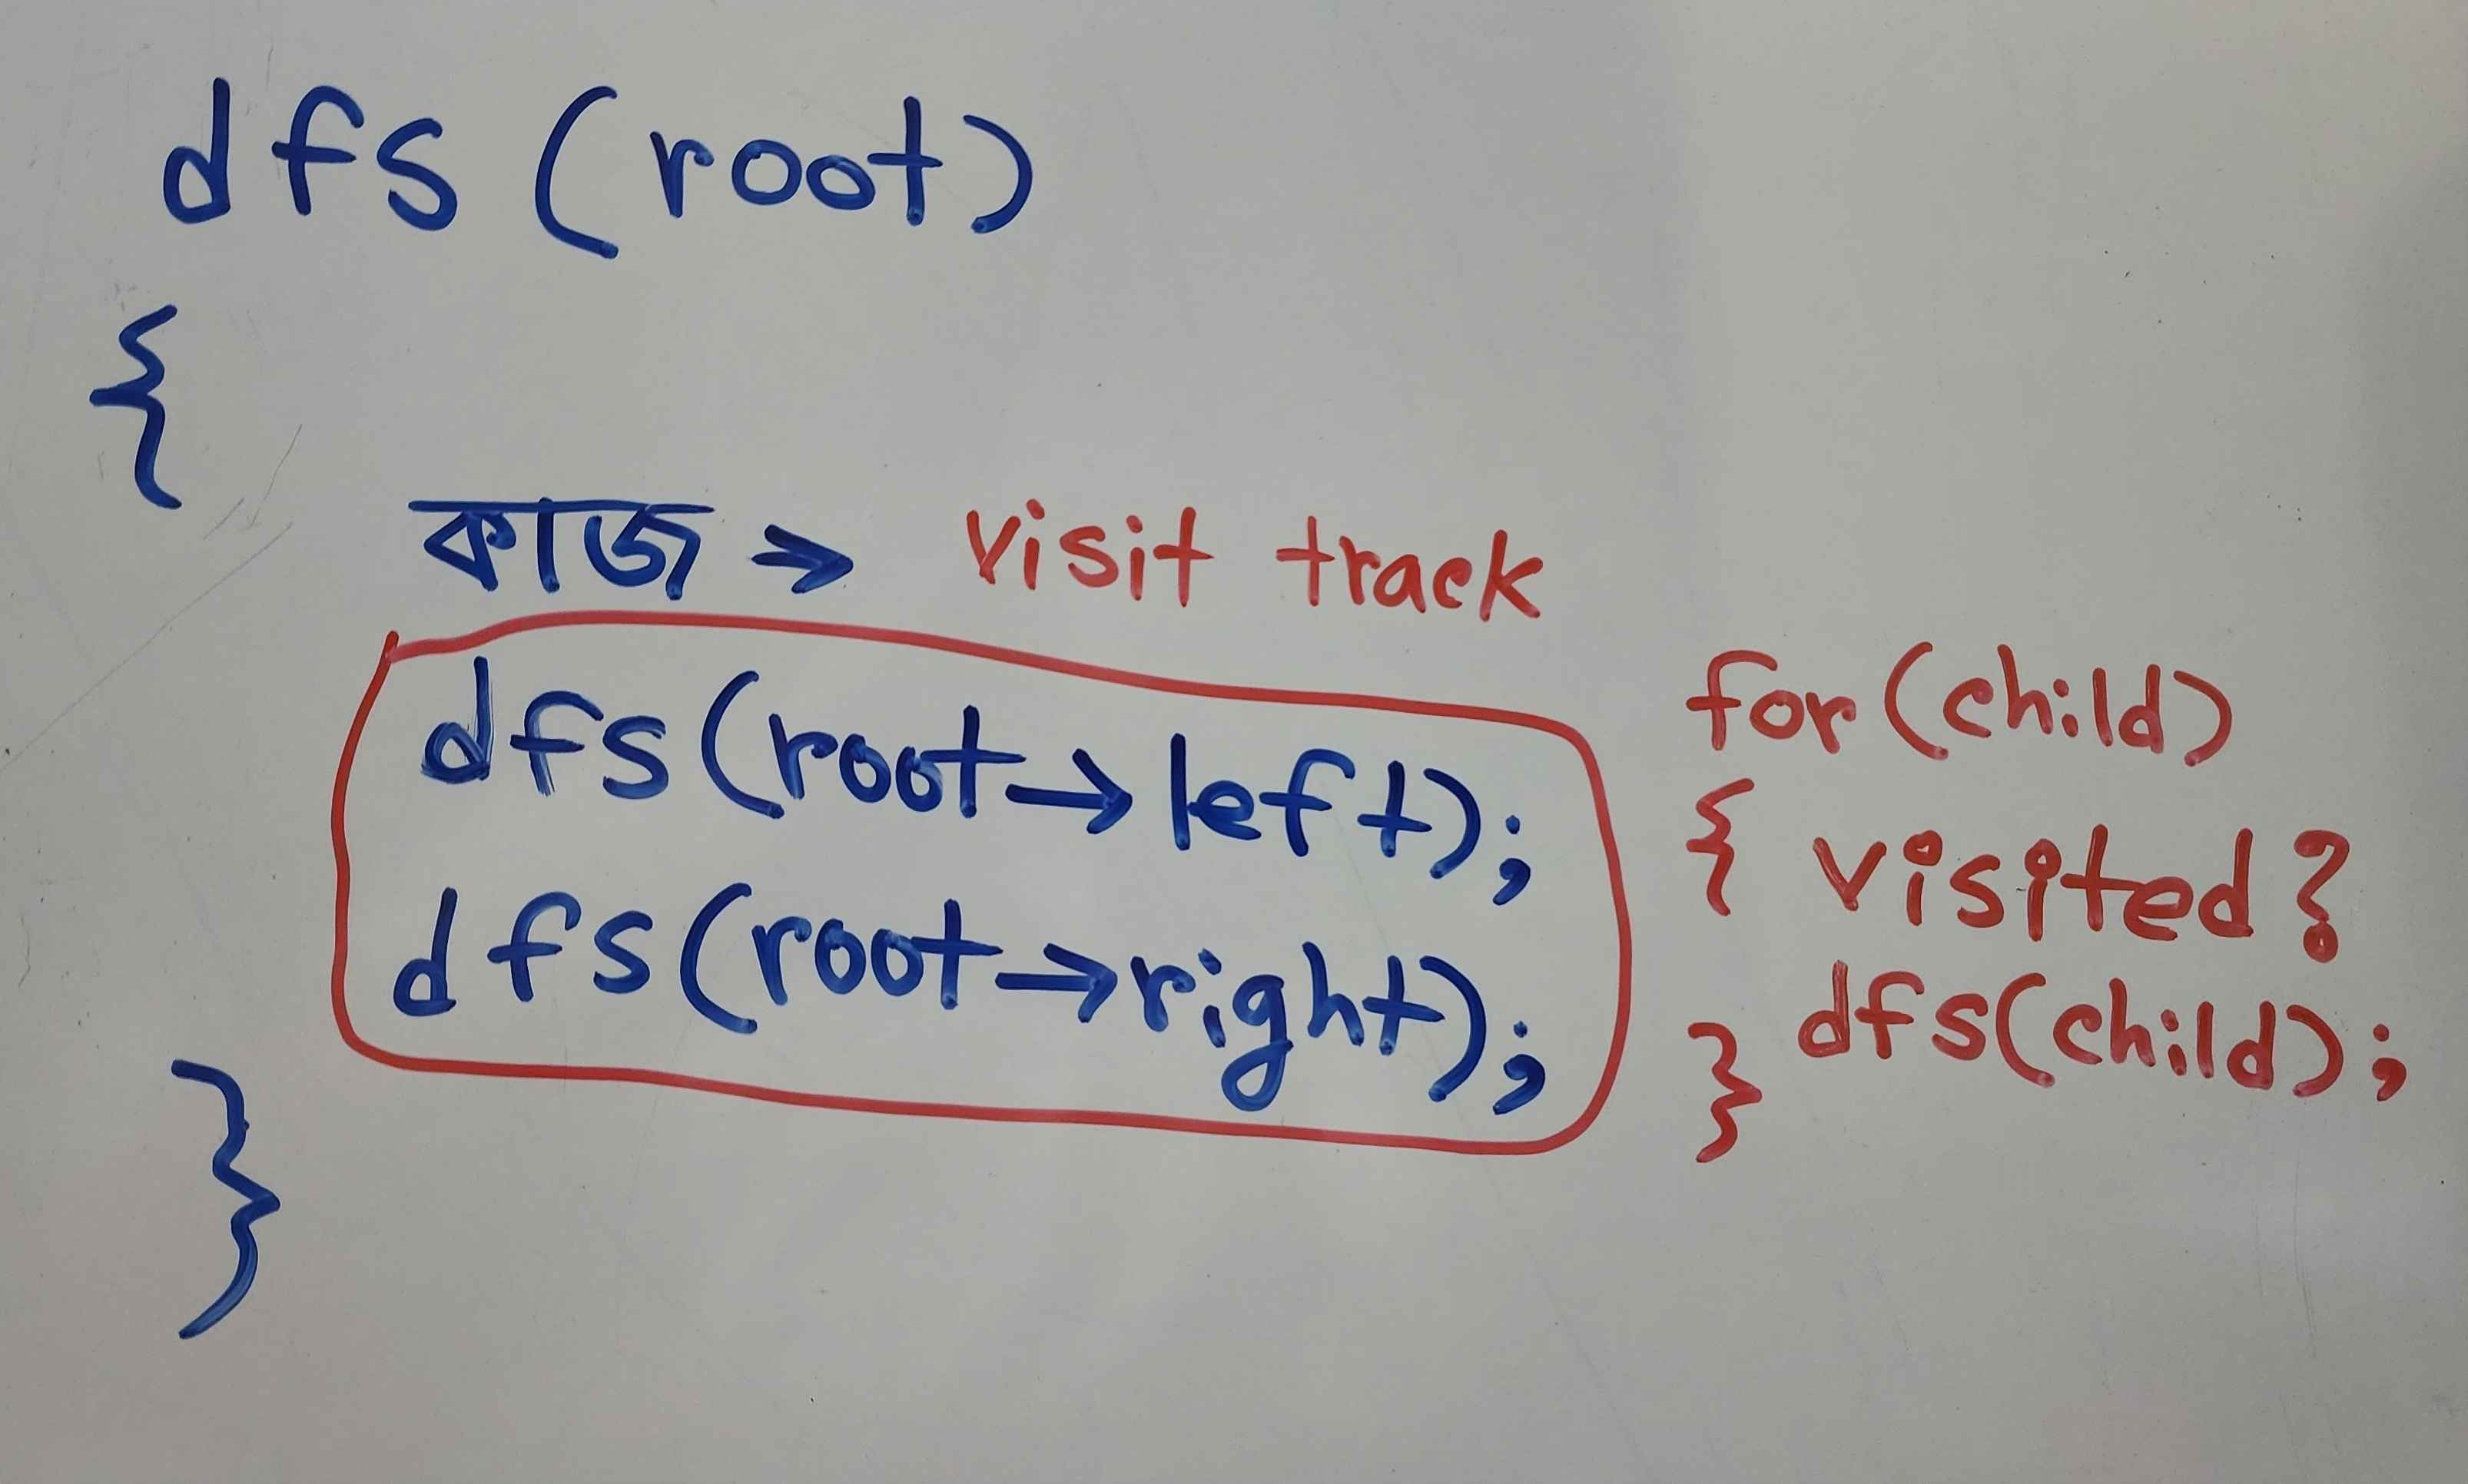 dfs (root)
{
কাজ → visit track
dfs(root→left);
dfs(root→right);
}
for (child)
{ visited?
dfs(child);
}